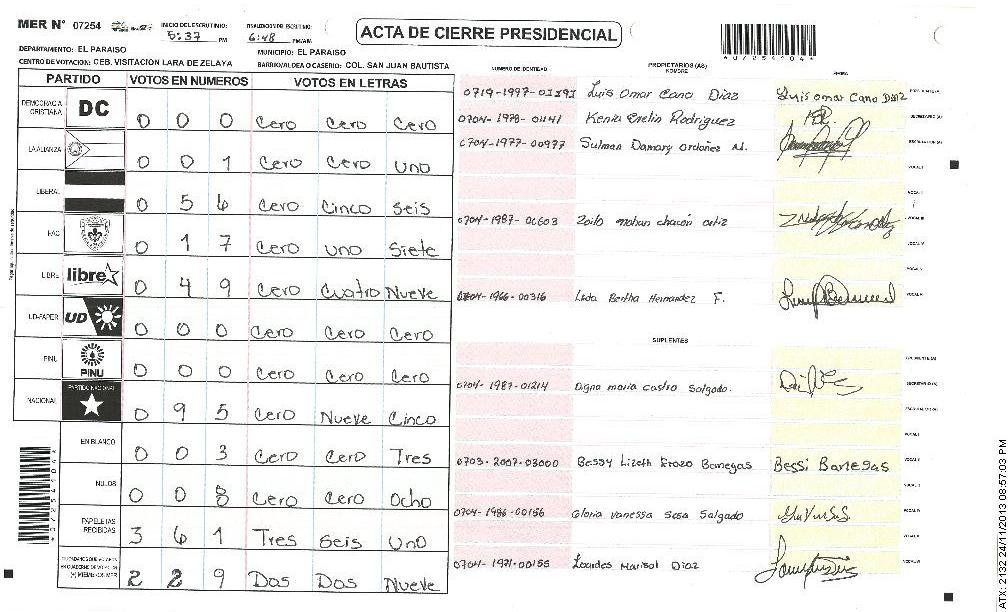 MER N° 07254
INICIO DEL ESCRUTINIO:
5:37 PM
FINALIZACION DEL ESCRUTINIO:
6:48 PM/AM
ACTA DE CIERRE PRESIDENCIAL
DEPARTAMENTO: EL PARAISO
MUNICIPIO: EL PARAISO
CENTRO DE VOTACION: CEB. VISITACION LARA DE ZELAYA
BARRIO/ALDEA O CASERIO: COL. SAN JUAN BAUTISTA
PARTIDO VOTOS EN NUMEROS VOTOS EN LETRAS
DEMOCRACIA CRISTIANA DC 0 0 0 Cero Cero Cero
LA ALIANZA 0 0 1 Cero Cero Uno
LIBERAL 0 5 6 Cero Cinco Seis
PAC 0 1 7 Cero Uno Siete
LIBRE libre 0 4 9 Cero Cuatro Nueve
UD-FAPER UD 0 0 0 Cero Cero Cero
PINU PINU 0 0 0 Cero Cero Cero
NACIONAL PARTIDO NACIONAL 0 9 5 Cero Nueve Cinco
EN BLANCO 0 0 3 Cero Cero Tres
NULOS 0 0 8 Cero Cero Ocho
PAPELETAS RECIBIDAS 3 6 1 Tres Seis Uno
CIUDADANOS QUE VOTARON
EN CUADERNO DE VOTACION
(+) MIEMBROS MER 2 2 9 Dos Dos Nueve
NUMERO DE IDENTIDAD
PROPIETARIOS (AS)
NOMBRE
FIRMA
0719-1997-01191 Luis Omar Cano Diaz Luis Omar Cano Diaz
0704-1978-01141 Kenia Evelin Rodriguez SECRETARIO (A)
0704-1977-00977 Sulman Damary Ordoñez M. ESCRUTADOR (A)
VOCAL I
VOCAL II
0704-1987-00603 Zoilo mohan chacón ortiz VOCAL III
VOCAL IV
VOCAL V
0704-1966-00316 Lida Bertha Hernandez F. VOCAL VI
SUPLENTES
PRESIDENTE (A)
0704-1987-01214 Digna maria castro Salgado. SECRETARIO (A)
ESCRUTADOR (A)
VOCAL I
0703-2007-03000 Bessy Lizeth Erazo Banegas Bessi Banegas VOCAL II
0704-1986-00156 Gloria Vanessa Sosa Salgado
0704-1971-00155 Lourdes Marisol Diaz
ATX: 2132 24/11/2013 08:57:03 PM